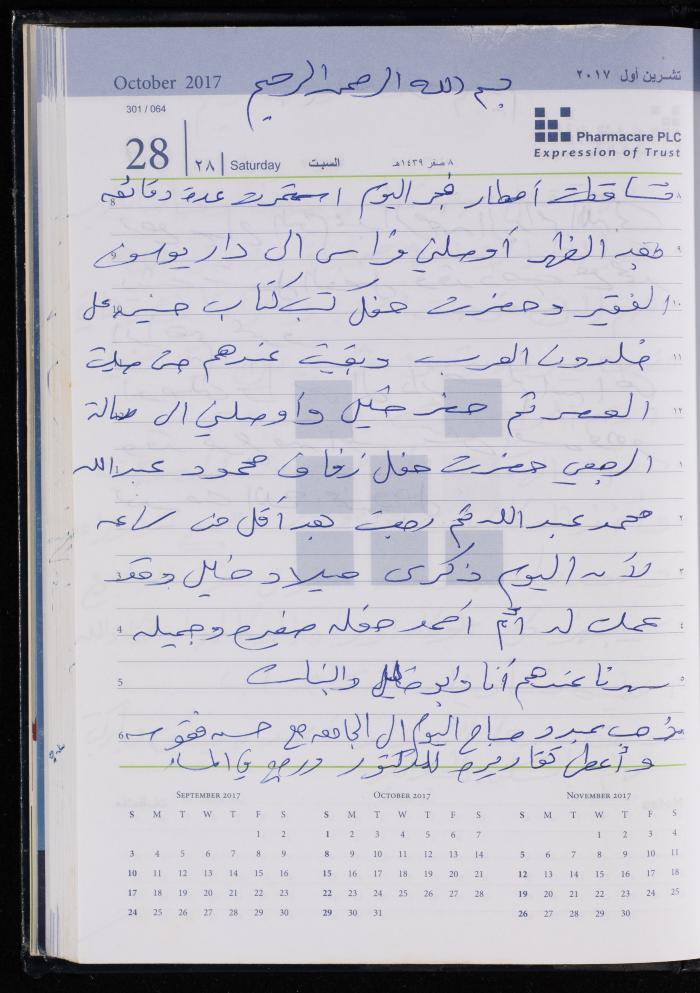 October 2017
بسم الله الرحمن الرحيم
تشرين أول ٢٠١٧
301 / 064
28
٢٨
Saturday
السبت
٨ صفر ١٤٣٩هـ
Pharmacare PLC
Expression of Trust
تساقطت أمطار فجر اليوم استمرت عدة دقائق
بعد الظهر أوصلني فراس الى دار يوسف
الفقير وحضرت حفل كتب كتاب على
خلدون العرب وبقيت عندهم حتى صليت
العصر ثم حضر خليل وأوصلني الى صالة
حضرت حفل زفاف محمود عبدالله
محمد عبد الله ثم رجعت بعد أقل من ساعه
لأنه اليوم ذكرى ميلاد خليل وقد
عملت له أم أحمد حفله صغيره وجميله
سهرنا عندهم أنا وابو خليل والبنات
صباح اليوم الى الجامعه مع
وأعطى تقاريره للدكتور ورجع في المساء
٨
٩
١٠
١١
١٢
١
٢
٣
٤
4
5
6
SEPTEMBER 2017
S M T W T F S
1 2
3 4 5 6 7 8 9
10 11 12 13 14 15 16
17 18 19 20 21 22 23
24 25 26 27 28 29 30
OCTOBER 2017
S M T W T F S
1 2 3 4 5 6 7
8 9 10 11 12 13 14
15 16 17 18 19 20 21
22 23 24 25 26 27 28
29 30 31
NOVEMBER 2017
S M T W T F S
1 2 3 4
5 6 7 8 9 10 11
12 13 14 15 16 17 18
19 20 21 22 23 24 25
26 27 28 29 30